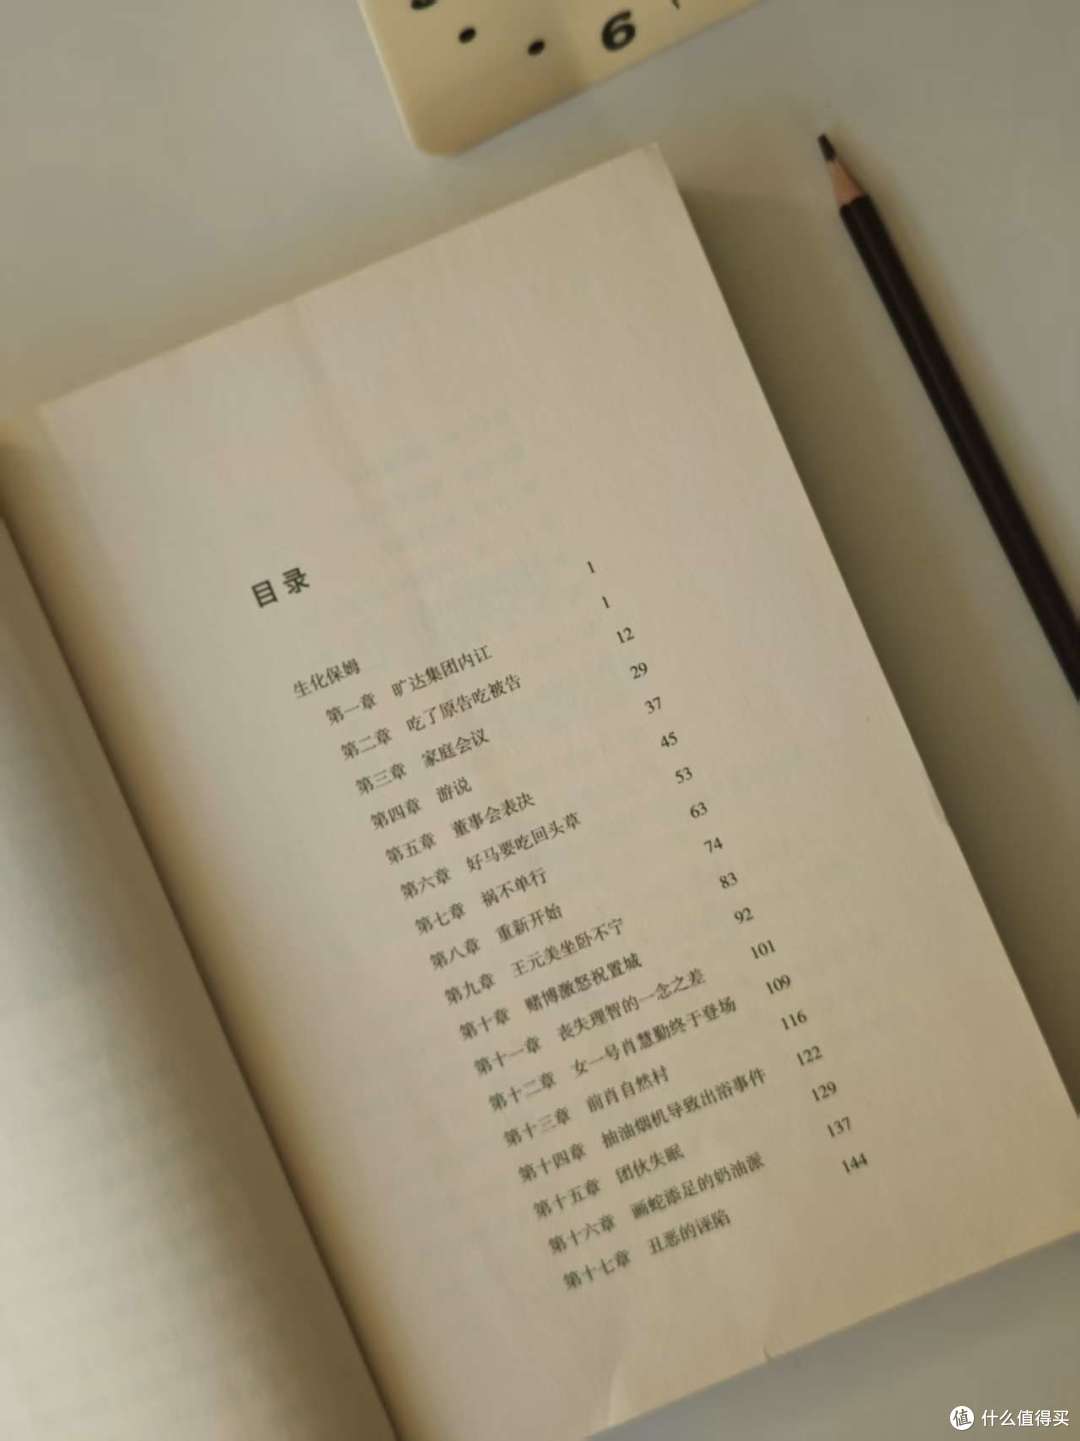 6
目录
生化保姆 1
第一章 旷达集团内讧 1
第二章 吃了原告吃被告 12
第三章 家庭会议 29
第四章 游说 37
第五章 董事会表决 45
第六章 好马要吃回头草 53
第七章 祸不单行 63
第八章 重新开始 74
第九章 王元美坐卧不宁 83
第十章 赌博激怒祝置城 92
第十一章 丧失理智的一念之差 101
第十二章 女一号肖慧勤终于登场 109
第十三章 前肖自然村 116
第十四章 抽油烟机导致出浴事件 122
第十五章 团伙失眠 129
第十六章 画蛇添足的奶油派 137
第十七章 丑恶的诬陷 144
值 什么值得买